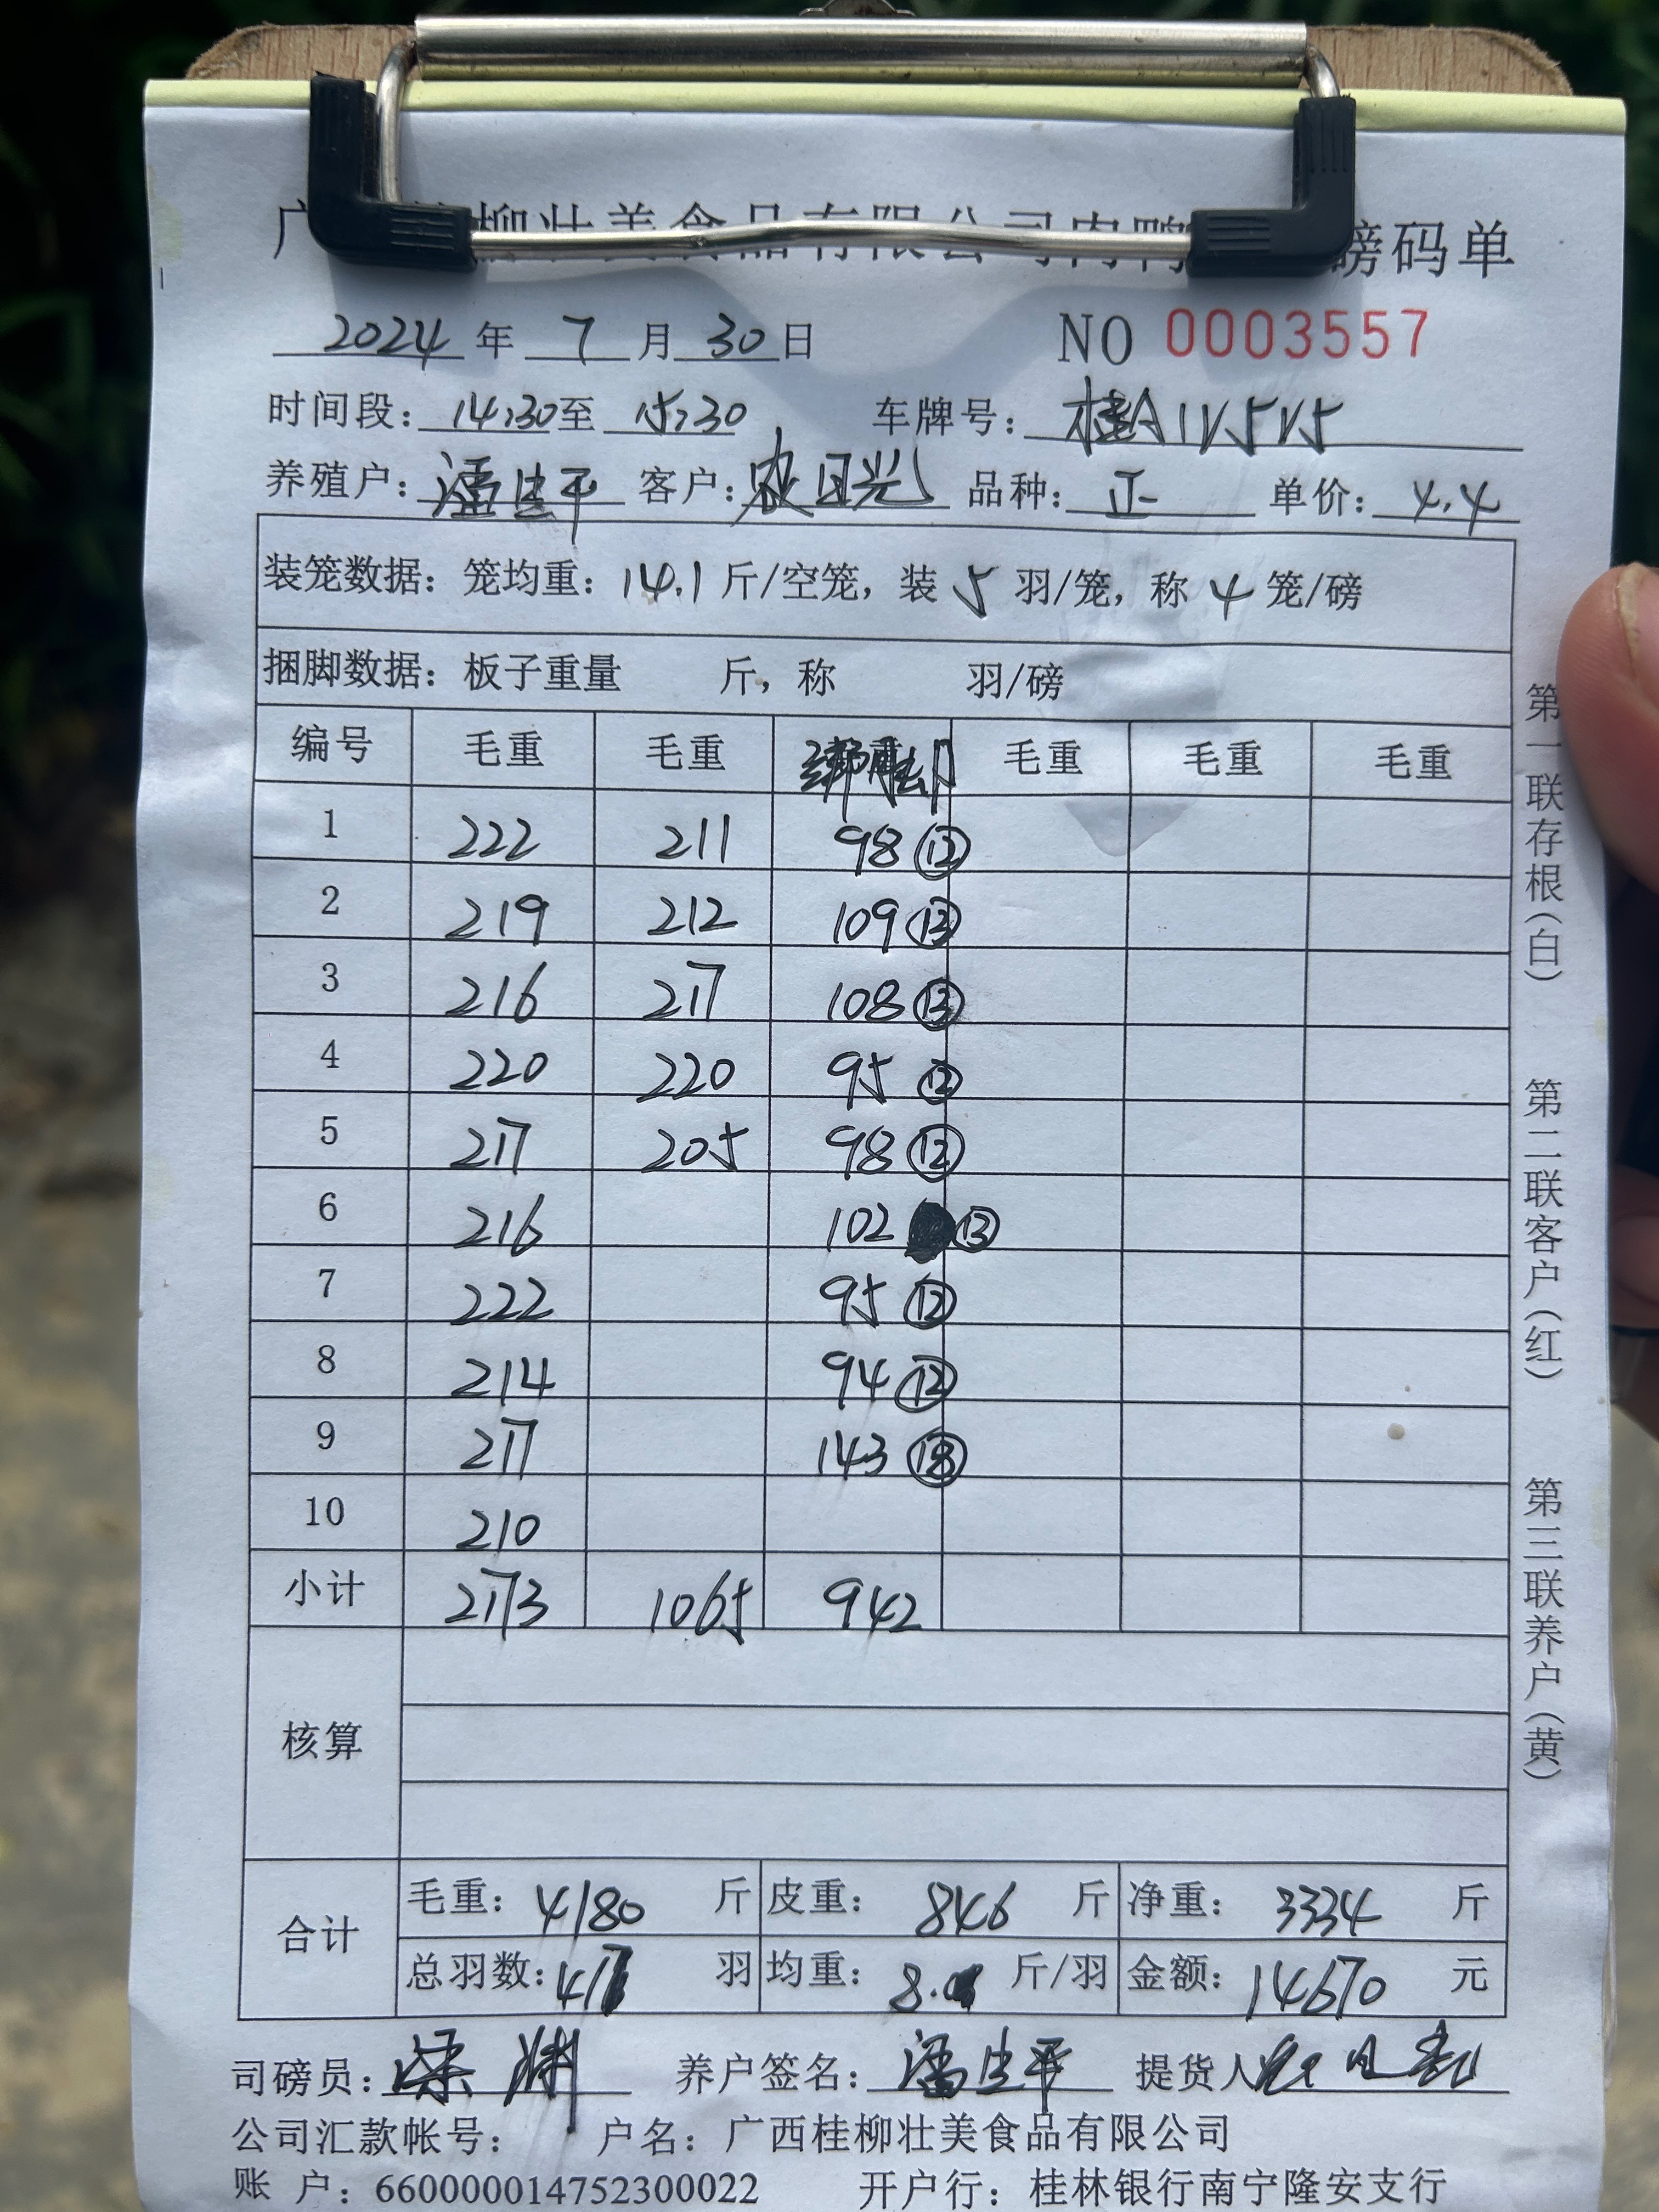 柳壮美食品有限公司肉鸭 磅码单
2024 年 7 月 30 日 NO 0003557
时间段: 14:30 至 15:30 车牌号: 桂A1V5V5
养殖户: 潘生平 客户: 农日光 品种: 正 单价: 4.4
装笼数据: 笼均重: 14.1 斤/空笼, 装 5 羽/笼, 称 4 笼/磅
捆脚数据: 板子重量 斤, 称 羽/磅
编号 毛重 毛重 毛重 毛重 毛重
1 222 211 98 ⑫
2 219 212 109 ⑬
3 216 217 108 ⑬
4 220 220 95 ⑫
5 217 205 98 ⑫
6 216 102 ⑬
7 222 95 ⑫
8 214 94 ⑫
9 217 143 ⑱
10 210
小计 2173 1065 942
核算
合计 毛重: 4180 斤 皮重: 846 斤 净重: 3334 斤
总羽数: 41 羽 均重: 8.0 斤/羽 金额: 14670 元
司磅员: 梁 养户签名: 潘生平 提货人
公司汇款帐号: 户名: 广西桂柳壮美食品有限公司
账 户: 660000014752300022 开户行: 桂林银行南宁隆安支行
第一联存根(白) 第二联客户(红) 第三联养户(黄)